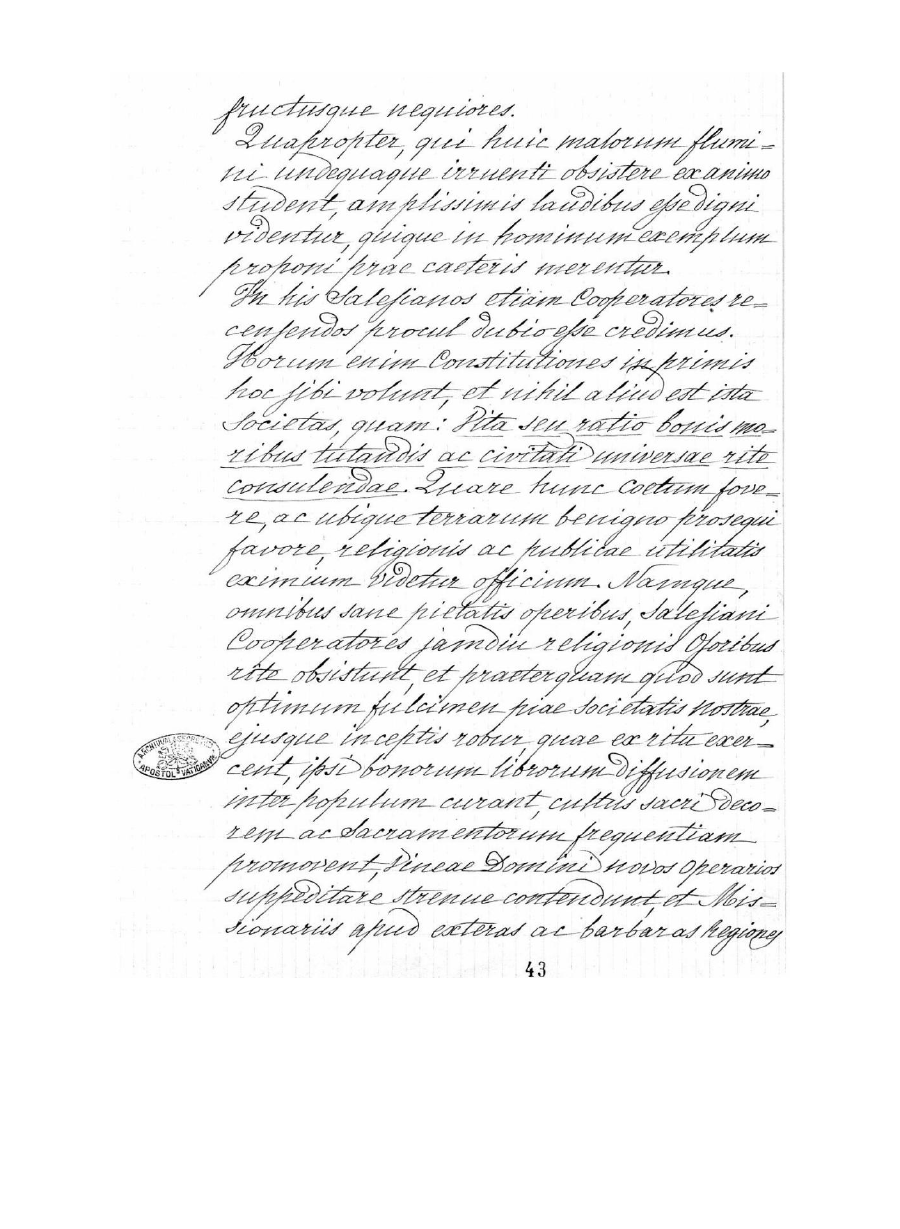 fructusque nequiores.
Quapropter, qui huic malorum flumi=
ni undequaque irruenti obsistere ex animo
student, amplissimis laudibus esse digni
videntur, quique in hominum exemplum
proponi prae caeteris merentur.
In his Salesianos etiam Cooperatores re=
censendos procul dubio esse credimus.
Horum enim Constitutiones in primis
hoc sibi volunt, et nihil aliud est ista
Societas, quam: Vita seu ratio bonis mo=
ribus tutandis ac civitati universae rite
consulendae. Quare hunc Coetum fove=
re, ac ubique terrarum benigno prosequi
favore, religionis ac publicae utilitatis
eximium videtur officium. Namque,
omnibus sane pietatis operibus, Salesiani
Cooperatores jamdiu religionis Osoribus
rite obsistunt, et praeterquam quod sunt
optimum fulcimen piae Societatis nostrae,
ejusque inceptis robur, quae ex ritu exer=
cent, ipsi bonorum librorum diffusionem
inter populum curant, cultus sacri deco=
rem ac Sacramentorum frequentiam
promovent, Vineae Domini novos Operarios
suppeditare strenue contendunt, et Mis=
sionariis apud exteras ac barbaras Regiones
ARCHIVUM SECRETUM
APOSTOL. VATICANUM
43